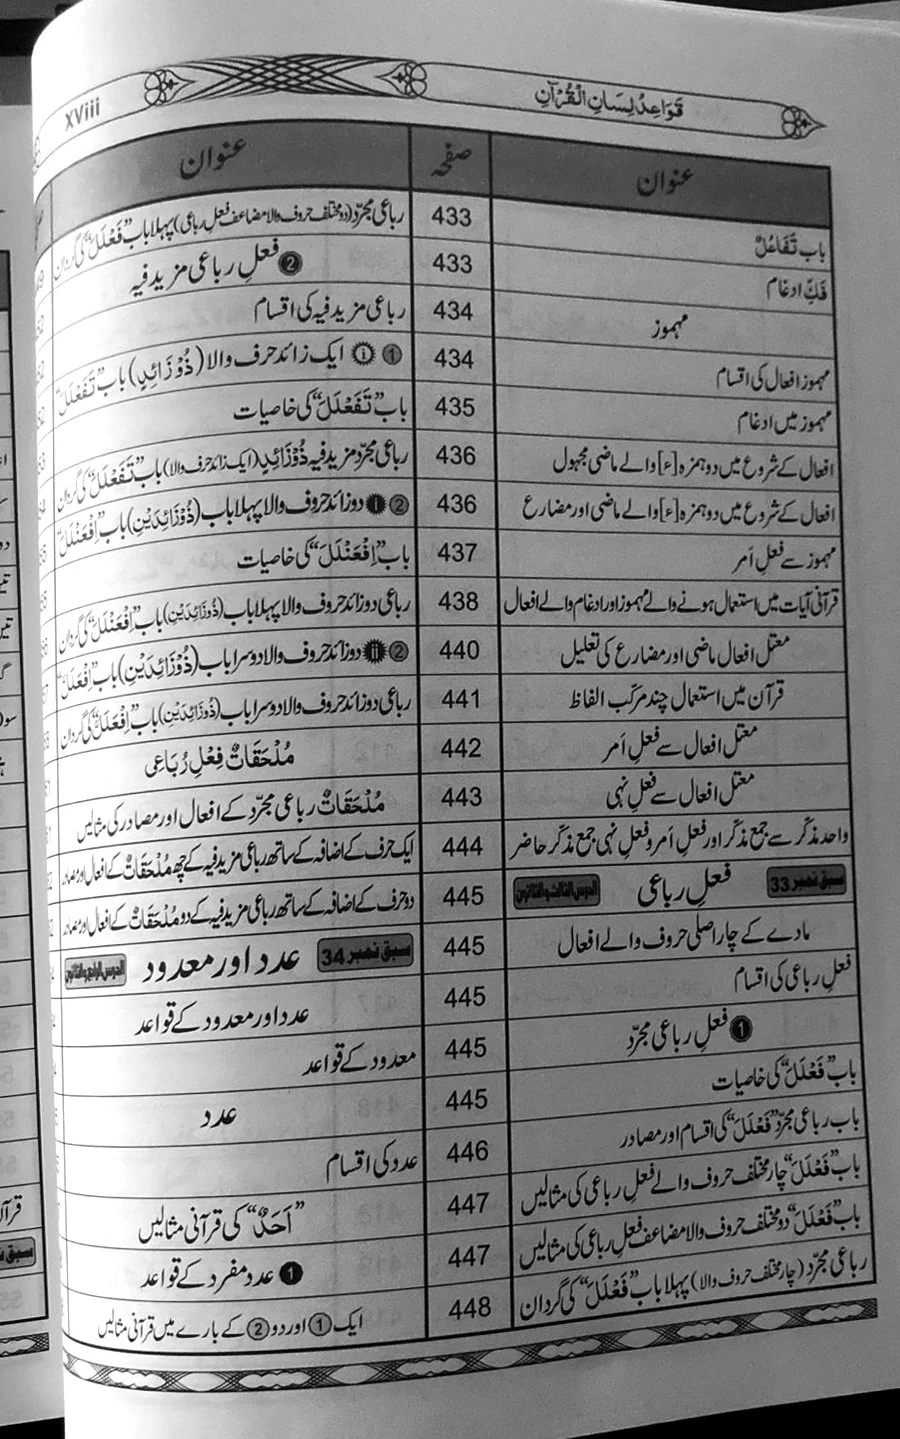 xviii
قَوَاعِدُ لِسَانِ الْقُرْآنِ
عنوان
صفحہ
باب تَفَاعُلٌ
433
فَكِّ ادغام
433
مہموز
434
مہموز افعال کی اقسام
434
مہموز میں ادغام
435
افعال کے شروع میں دو ہمزہ [ء] والے ماضی مجہول
436
افعال کے شروع میں دو ہمزہ [ء] والے ماضی اور مضارع
436
مہموز سے فعلِ اَمر
437
قرآنی آیات میں استعمال ہونے والے مہموز اور ادغام والے افعال
438
معتل افعال ماضی اور مضارع کی تعلیل
440
قرآن میں استعمال چند مرکب الفاظ
441
معتل افعال سے فعلِ اَمر
442
معتل افعال سے فعلِ نہی
443
واحد مذکّر سے جمع مذکّر اور فعلِ اَمر و فعلِ نہی جمع مذکّر حاضر
444
سبق نمبر 33 فعلِ رباعی الدرس الثالث والثلاثون
445
مادے کے چار اصلی حروف والے افعال
445
فعلِ رباعی کی اقسام
445
❶ فعلِ رباعی مجرّد
445
باب ”فَعْلَلَ“ کی خاصیات
445
باب رباعی مجرّد ”فَعْلَلَ“ کی اقسام اور مصادر
446
باب ”فَعْلَلَ“ چار مختلف حروف والے فعلِ رباعی کی مثالیں
447
باب ”فَعْلَلَ“ دو مختلف حروف والا مضاعف فعلِ رباعی کی مثالیں
447
رباعی مجرّد (چار مختلف حروف والا) پہلا باب ”فَعْلَلَ“ کی گردان
448
عنوان
رباعی مجرّد (دو مختلف حروف والا مضاعف فعلِ رباعی) پہلا باب ”فَعْلَلَ“ کی گردان
❷ فعلِ رباعی مزید فیہ
رباعی مزید فیہ کی اقسام
① ⓘ ایک زائد حرف والا (ذُوْ زَائِدٍ) باب ”تَفَعْلَلَ“
باب ”تَفَعْلَلَ“ کی خاصیات
رباعی مجرّد مزید فیہ ذُوْزَائِدٍ (ایک زائد حرف والا) باب ”تَفَعْلَلَ“ کی گردان
② ⓘ دو زائد حروف والا پہلا باب (ذُوْزَائِدَيْنِ) باب ”اِفْعَنْلَلَ“
باب ”اِفْعَنْلَلَ“ کی خاصیات
رباعی دو زائد حروف والا پہلا باب (ذُوْزَائِدَيْنِ) باب ”اِفْعَنْلَلَ“ کی گردان
② ⓘⓘ دو زائد حروف والا دوسرا باب (ذُوْزَائِدَيْنِ) باب ”اِفْعَلَلَّ“
رباعی دو زائد حروف والا دوسرا باب (ذُوْزَائِدَيْنِ) باب ”اِفْعَلَلَّ“ کی گردان
مُلْحَقَاتٌ فِعْلِ رُبَاعِی
مُلْحَقَاتٌ رباعی مجرّد کے افعال اور مصادر کی مثالیں
ایک حرف کے اضافہ کے ساتھ رباعی مزید فیہ کے چھ مُلْحَقَاتٌ کے افعال اور مصادر
دو حرف کے اضافہ کے ساتھ رباعی مزید فیہ کے دو مُلْحَقَاتٌ کے افعال اور مصادر
سبق نمبر 34 عدد اور معدود الدرس الرابع والثلاثون
عدد اور معدود کے قواعد
معدود کے قواعد
عدد
عدد کی اقسام
”اَحَدٌ“ کی قرآنی مثالیں
❶ عدد مفرد کے قواعد
ایک ① اور دو ② کے بارے میں قرآنی مثالیں